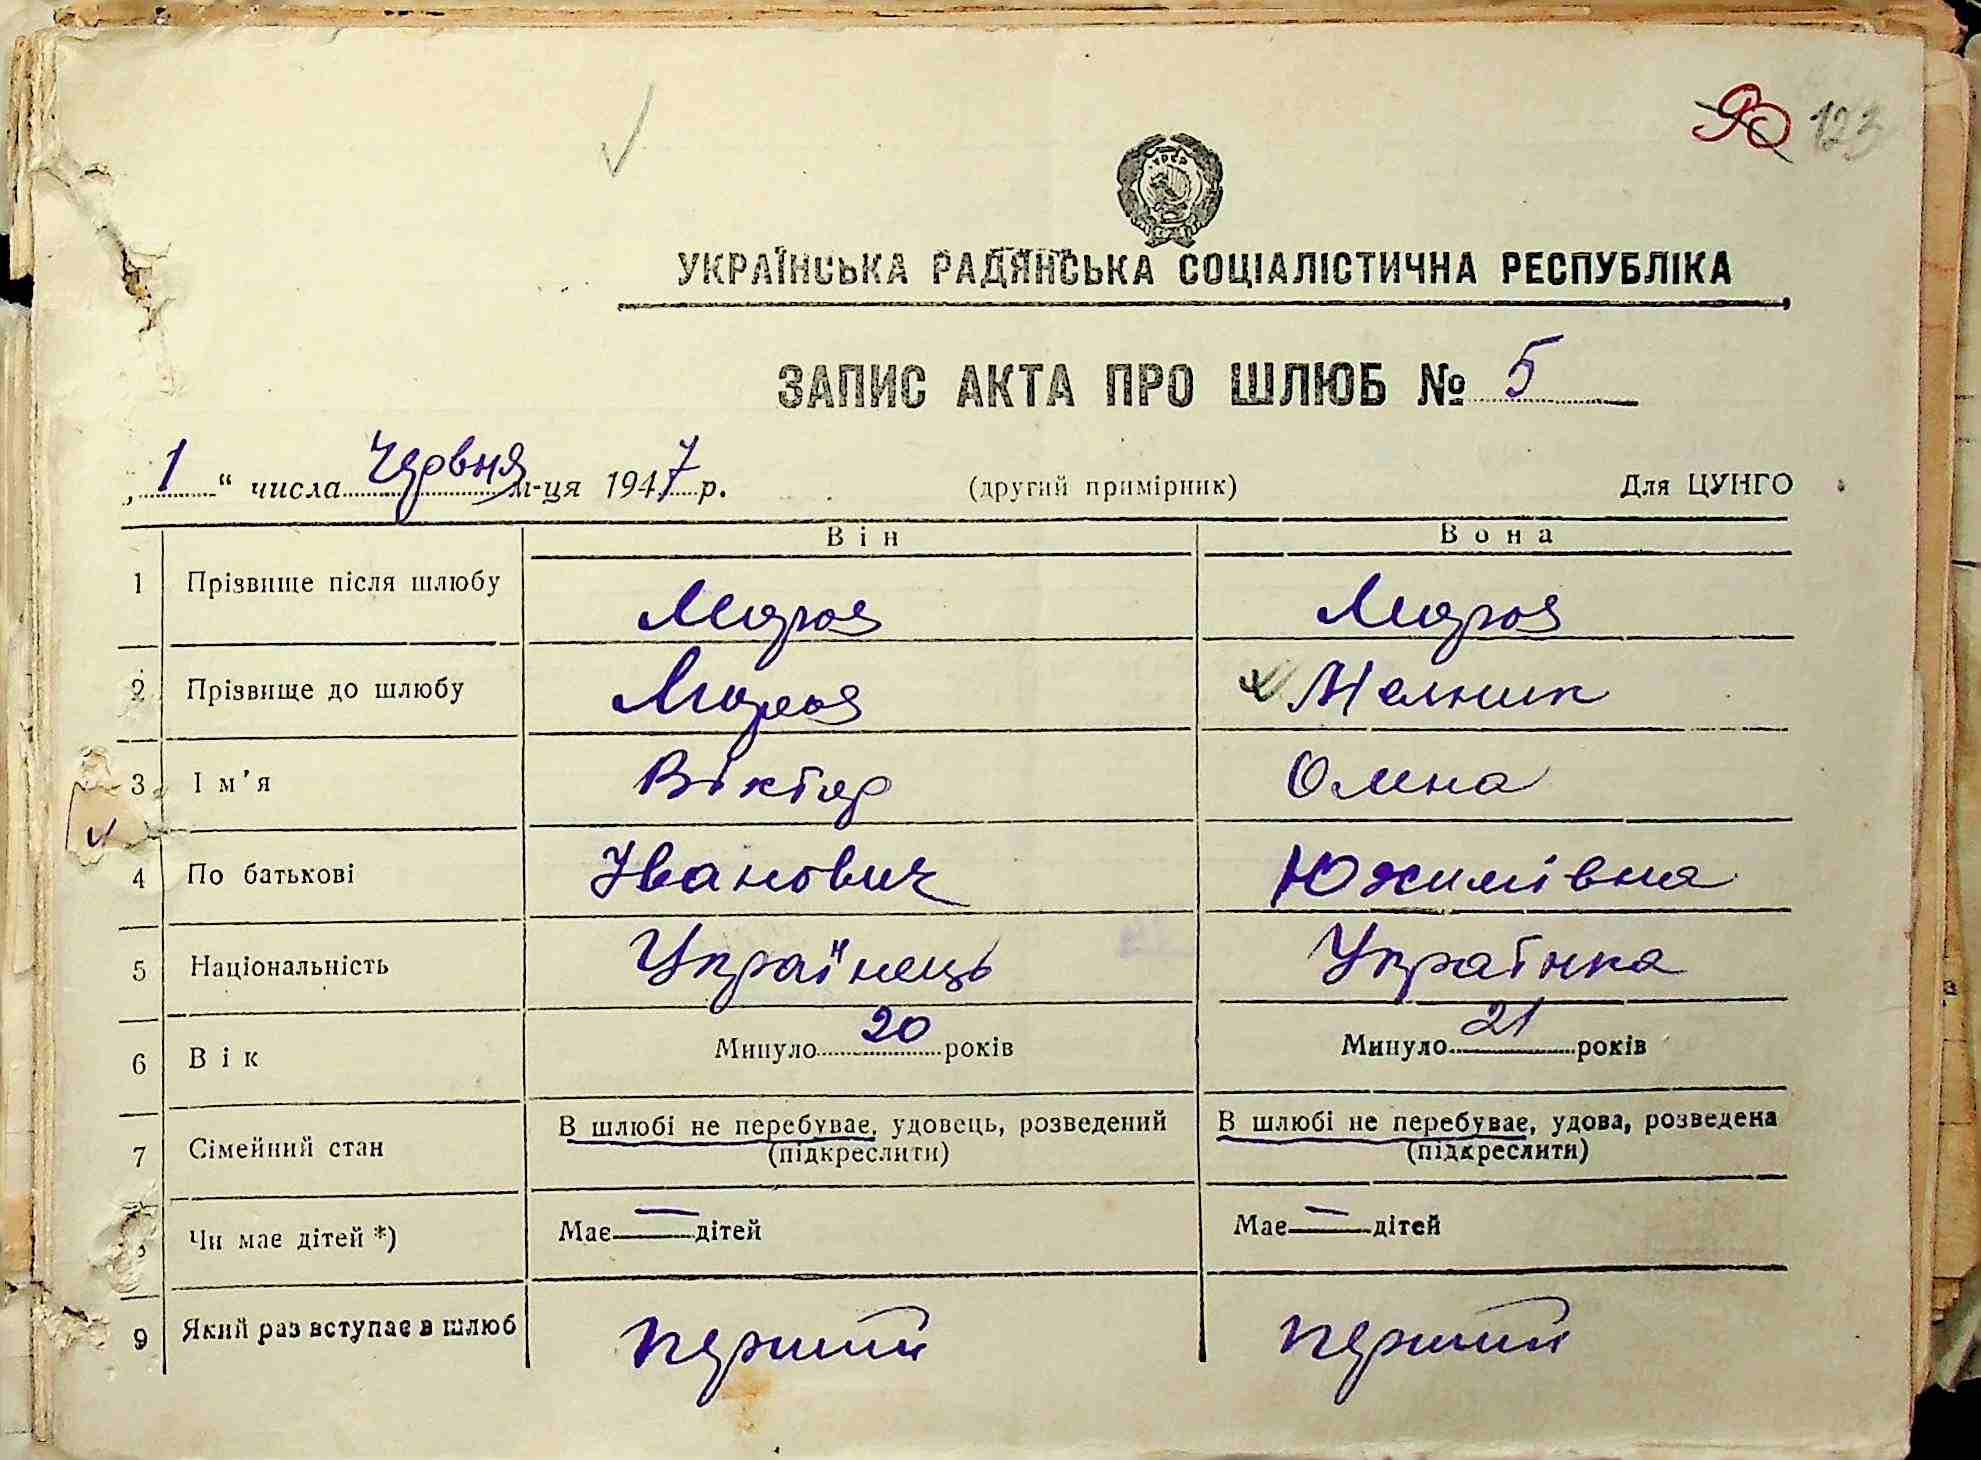 90 123
УКРАЇНСЬКА РАДЯНСЬКА СОЦІАЛІСТИЧНА РЕСПУБЛІКА
ЗАПИС АКТА ПРО ШЛЮБ № 5
„1“ числа Червня м-ця 1947 р. (другий примірник) Для ЦУНГО
Він Вона
1 Прізвище після шлюбу
2 Прізвище до шлюбу Мелник
3 Ім'я Віктор Олена
4 По батькові Іванович Юхимівна
5 Національність Українець Українка
6 Вік Минуло 20 років Минуло 21 років
7 Сімейний стан В шлюбі не перебуває, удовець, розведений В шлюбі не перебуває, удова, розведена
(підкреслити) (підкреслити)
Чи має дітей *) Має — дітей Має — дітей
9 Який раз вступає в шлюб перший перший